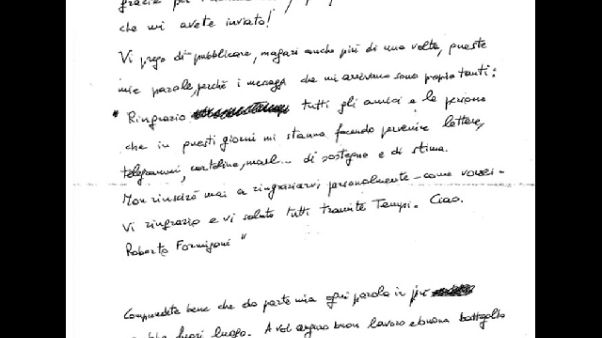 grazie per
che mi avete inviato!
Vi prego di pubblicare, magari anche più di una volta, queste
mie parole, perché i messaggi che mi arrivano sono proprio tanti:
" Ringrazio tutti gli amici e le persone
che in questi giorni mi stanno facendo pervenire lettere,
telegrammi, cartoline, mail... di sostegno e di stima.
Non riuscirò mai a ringraziarvi personalmente - come vorrei -
Vi ringrazio e vi saluto tutti tramite Tempi. Ciao.
Roberto Formigoni "
Comprendete bene che da parte mia ogni parola in più
fuori luogo. A voi auguro buon lavoro e buona battaglia